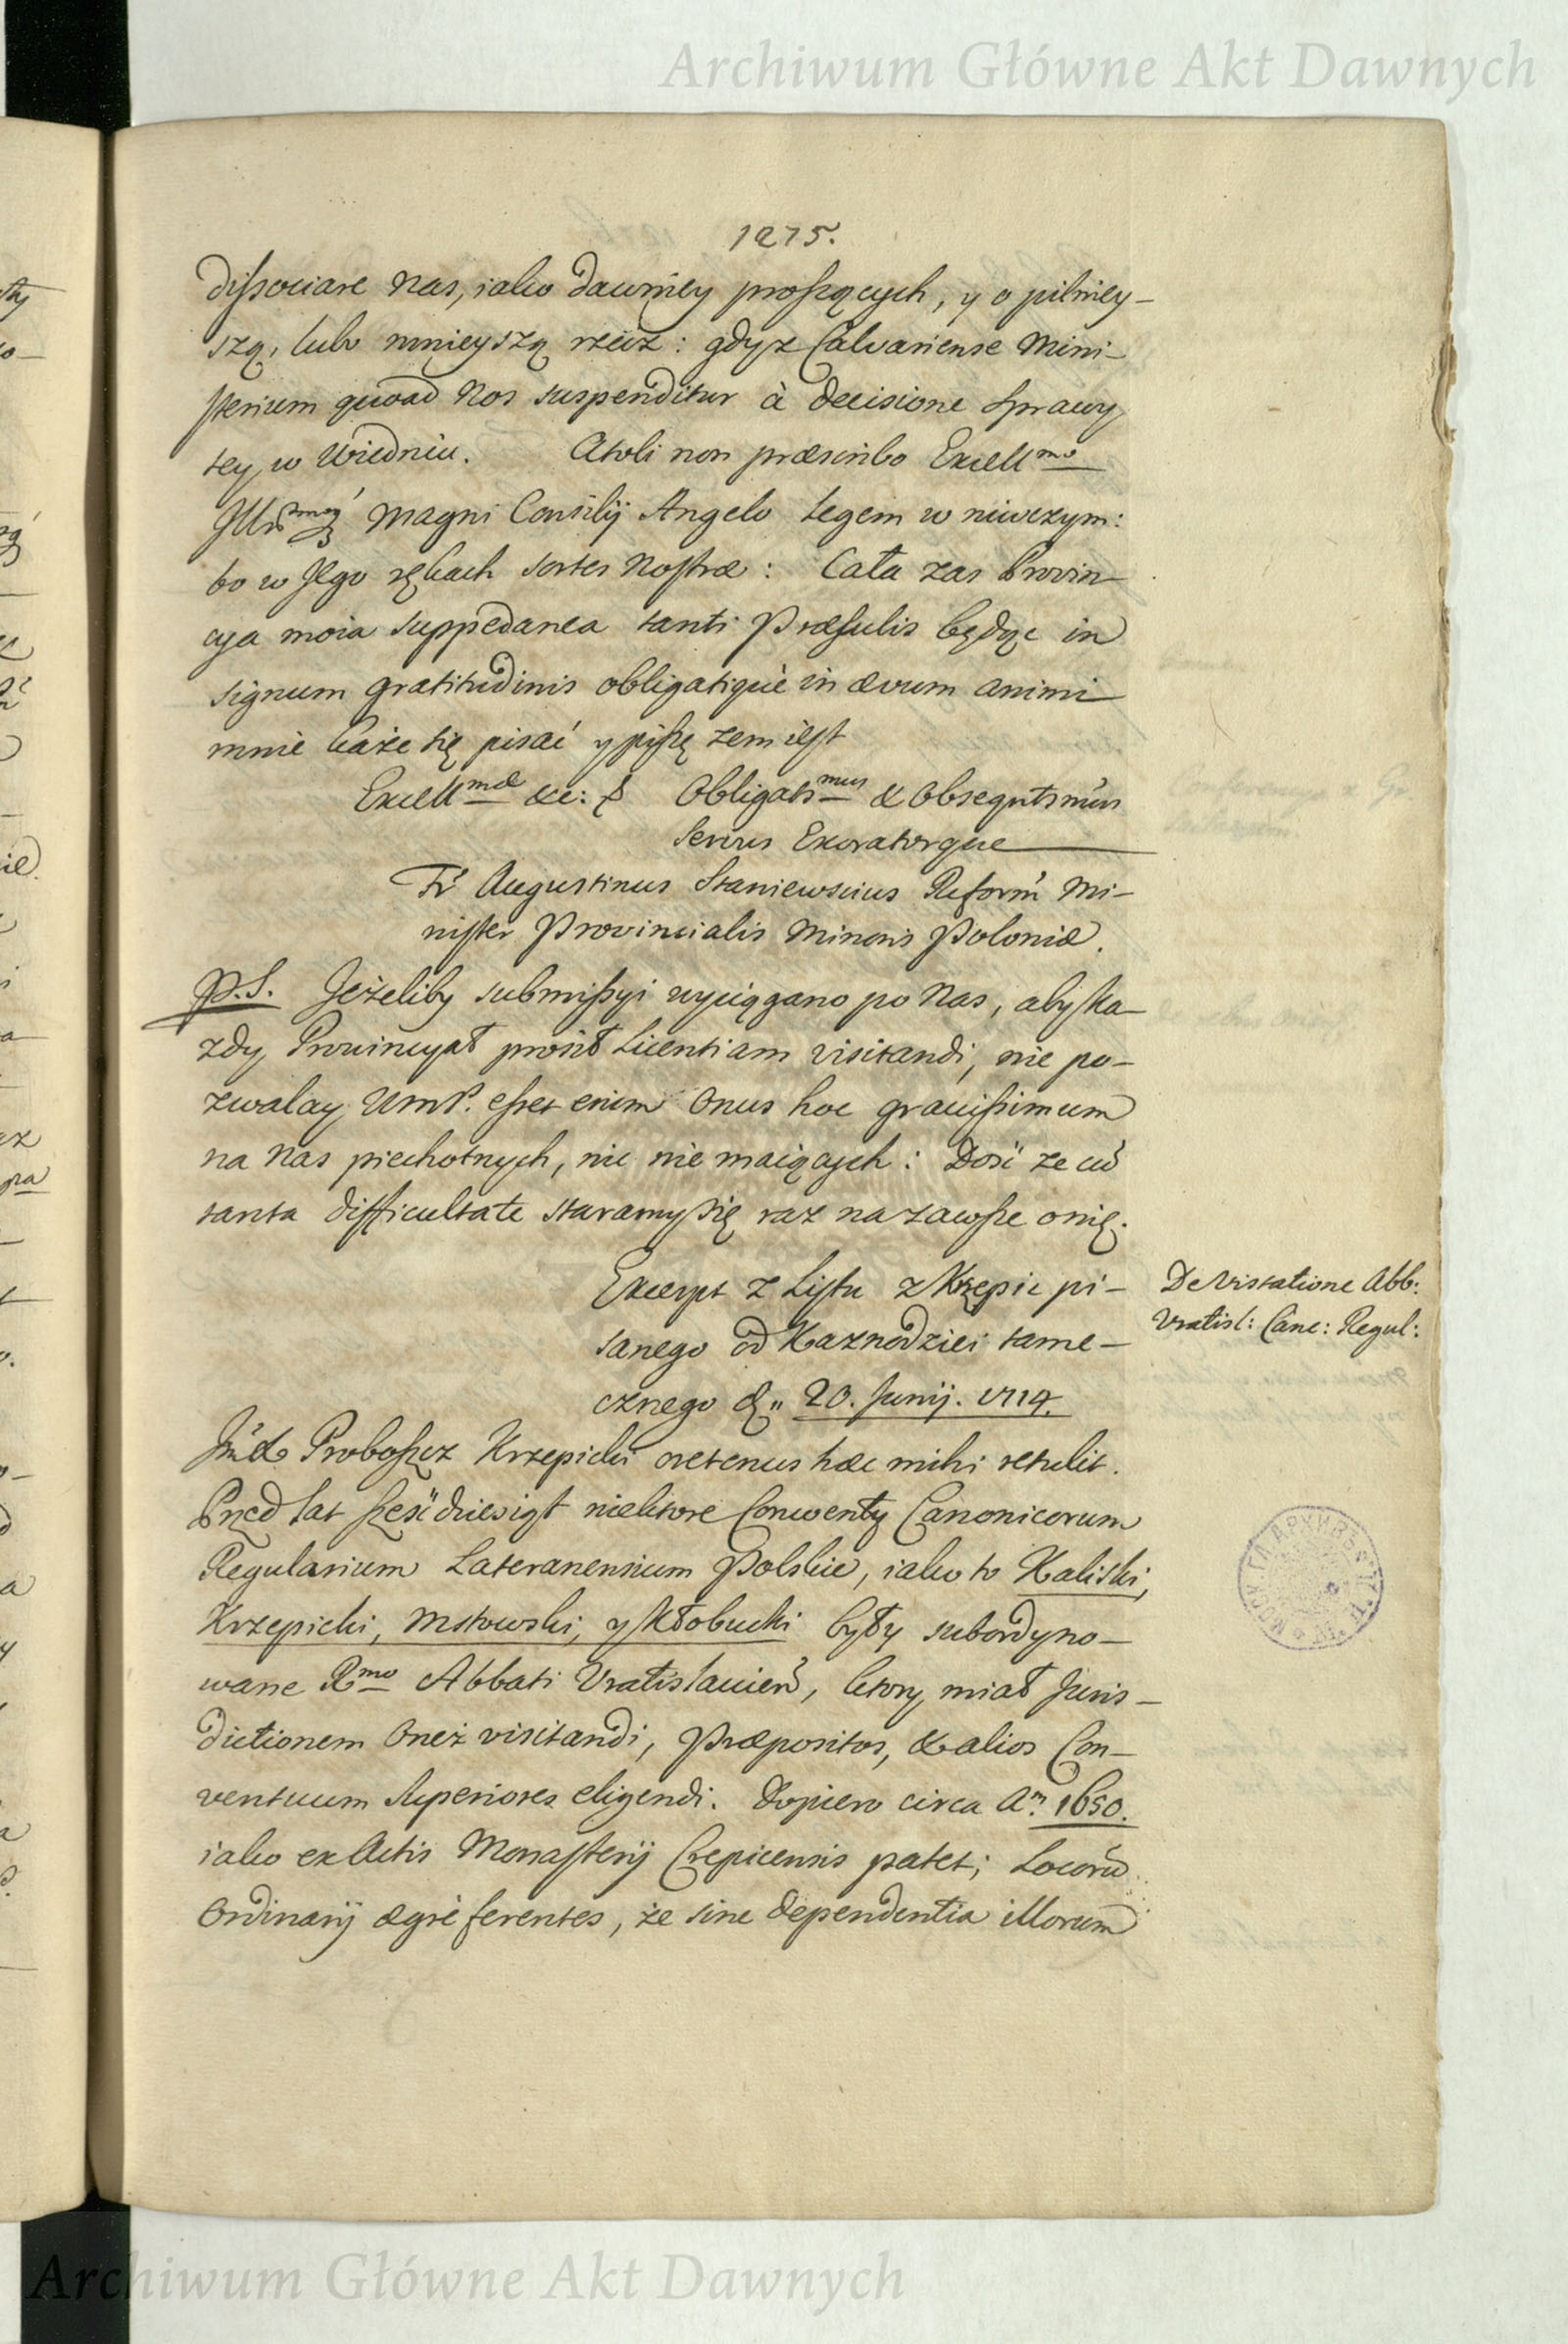 Archiwum Główne Akt Dawnych
1275.
dissociare nas, iako dawniey proszących, y o pilniey-
szą, lub mnieyszą rzecz: gdyz Calvariense Mini-
sterium quoad Nos suspenditur à decisione sprawy
tey w Wiedniu. Atoli non præscribo Excellmo
Illrmoq́ Magni Consilij Angelo legem w niwczym:
bo w Jego rękach sortes Nostræ: Cała zas Provin-
cya moia suppedanea tanti Præsulis będąc in
signum gratitudinis obligatiquè in ævum animi
mnie każe się pisać y piszę zem iest
Excellmæ &c: Obligatsmus & Obseqntsmús
Servus Exoratorque
Fŕ Augustinus Staniewscius Reforḿ Mi-
nister Provincialis Minoris Poloniæ.
P.S. Jeżeliby submissyi wyciągano po Nas, aby ka-
zdy Prowincyał prosił Licentiam visitandi, nie po-
zwalay WmP. esset enim Onus hoc gravissimum
na Nas piechotnych, nic nie maiących: Dość ze cū
tanta difficultate staramy się raz na zawsze o nię.
Excerpt z Listu z Krzepic pi-
sanego od Kaznodziei tame-
cznego d„ 20. Junij. 1714.
De Visitatione Abb:
Vratisl: Canc: Regul:
Jḿ X Proboszcz Krzepicki oretenus hæc mihi retulit.
Przed lat sześćdziesiąt niektore Conwenty Canonicorum
Regularium Lateranensium Polskie, iako to Kaliski,
Krzepicki, Mstowski, y Kłobucki były subordyno-
wane Rmo Abbati Vratislavień, ktory miał Juris-
dictionem Oneż visitandi, Præpositos, & alios Con-
ventuum Superiores eligendi. Dopiero circa Am. 1650.
iako ex Actis Monasterij Crepicensis patet; Locorū
Ordinarij ægrè ferentes, że sine dependentia illorum
Archiwum Główne Akt Dawnych